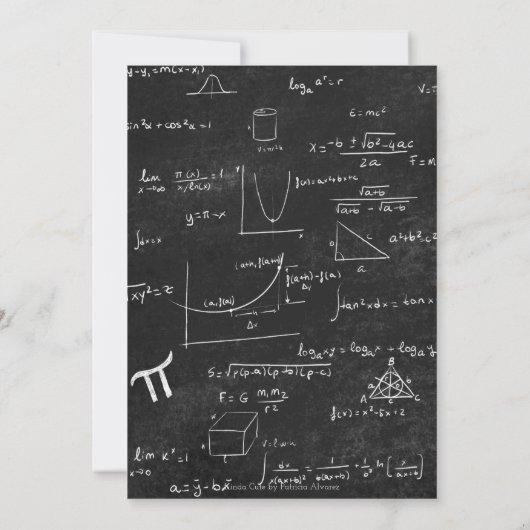 y-y₁=m(x-x₁)
logₐ aʳ=r
V=
ε=mc²
sin²α+cos²α=1
V=πr²h
x=-b±√b²-4ac/2a
F=m
lim x→∞ π(x)/x/ln(x)=1
f(x)=ax²+bx+c
√a+b/√a+b-√a-b
y=π-x
y
x
∫dx=x
b
c
a
a²+b²=c²
(a+h,f(a+h))
f(a+h)-f(a)
Δy
√xy²=z
(a,f(a))
h
Δx
∫tan²xdx=tanx
logₐxy=logₐx+logₐy
S=√p(p-a)(p-b)(p-c)
π
F=G m₁m₂/r²
B
a
b
A
c
C
f(x)=x²-5x+2
V=l·w·h
lim x→0 kˣ=1
∫dx/x(ax+b)²=1/b(ax+b)+1/b² ln[x/ax+b]
a=ȳ-bx̄
Kinda Cute by Patricia Alvarez